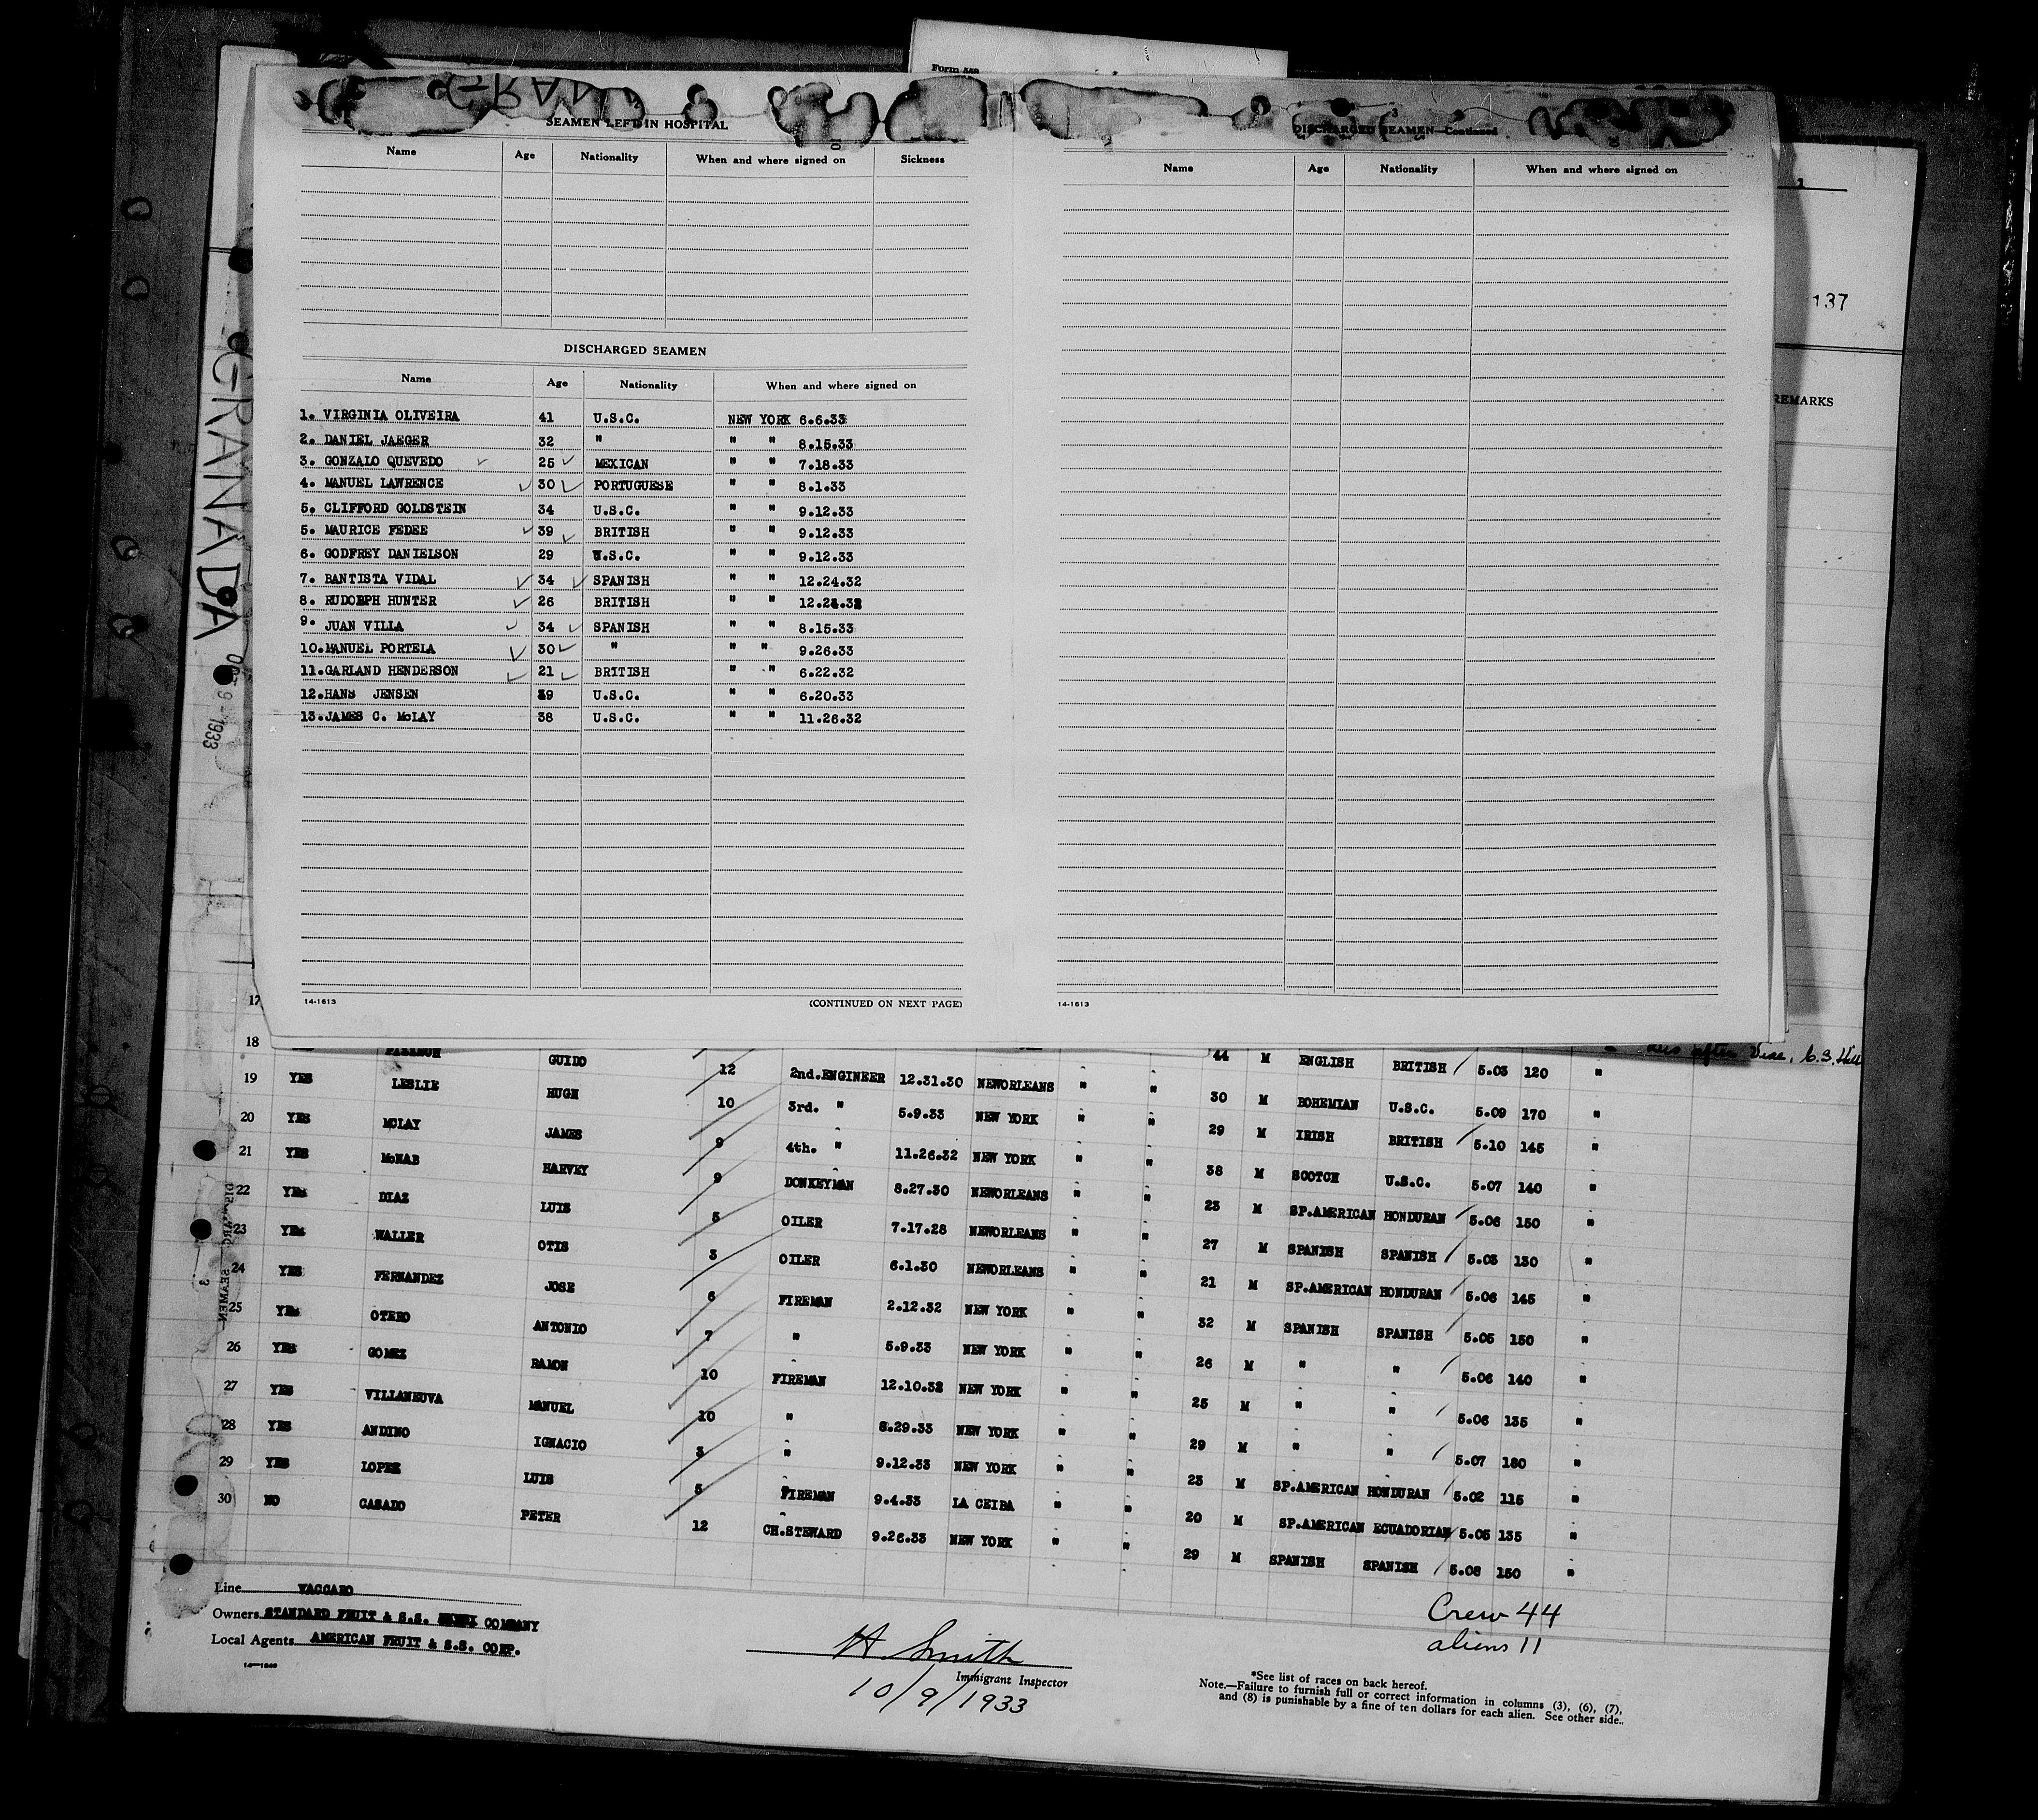 Form 559
GRANADA
SEAMEN LEFT IN HOSPITAL
Name Age Nationality When and where signed on Sickness
DISCHARGED SEAMEN
Name Age Nationality When and where signed on
1. VIRGINIA OLIVEIRA 41 U.S.C. NEW YORK 6.6.33
2. DANIEL JAEGER 32 " " " 8.15.33
3. GONZALO QUEVEDO 25 MEXICAN " " 7.18.33
4. MANUEL LAWRENCE 30 PORTUGUESE " " 8.1.33
5. CLIFFORD GOLDSTEIN 34 U.S.C. " " 9.12.33
5. MAURICE FEDEE 39 BRITISH " " 9.12.33
6. GODFREY DANIELSON 29 U.S.C. " " 9.12.33
7. BANTISTA VIDAL 34 SPANISH " " 12.24.32
8. RUDOLPH HUNTER 26 BRITISH " " 12.24.32
9. JUAN VILLA 34 SPANISH " " 8.15.33
10. MANUEL PORTELA 30 " " " 9.26.33
11. GARLAND HENDERSON 21 BRITISH " " 6.22.32
12. HANS JENSEN 39 U.S.C. " " 6.20.33
13. JAMES C. McLAY 38 U.S.C. " " 11.26.32
14-1613 (CONTINUED ON NEXT PAGE)
3
DISCHARGED SEAMEN—Continued
Name Age Nationality When and where signed on
14-1613
137
REMARKS
GRANADA
9 1933
17
18 GUIDO 12 2nd.ENGINEER 12.31.30 NEWORLEANS " " 44 M ENGLISH BRITISH 5.03 120 "
19 YES LESLIE HUGH 10 3rd. " 5.9.33 NEW YORK " " 30 M BOHEMIAN U.S.C. 5.09 170 "
20 YES MCLAY JAMES 9 4th. " 11.26.32 NEW YORK " " 29 M IRISH BRITISH 5.10 145 "
21 YES McNAB HARVEY 9 DONKEYMAN 8.27.30 NEWORLEANS " " 38 M SCOTCH U.S.C. 5.07 140 "
22 YES DIAZ LUIS 5 OILER 7.17.28 NEWORLEANS " " 23 M SP.AMERICAN HONDURAN 5.06 150 "
23 YES WALLER OTIS 3 OILER 6.1.30 NEWORLEANS " " 27 M SPANISH SPANISH 5.03 130 "
24 YES FERNANDEZ JOSE 6 FIREMAN 2.12.32 NEW YORK " " 21 M SP.AMERICAN HONDURAN 5.06 145 "
25 YES OTERO ANTONIO 7 " 5.9.33 NEW YORK " " 32 M SPANISH SPANISH 5.05 150 "
26 YES GOMEZ RAMON 10 FIREMAN 12.10.32 NEW YORK " " 26 M " " 5.06 140 "
27 YES VILLANEUVA MANUEL 10 " 8.29.33 NEW YORK " " 25 M " " 5.06 135 "
28 YES ANDINO IGNACIO 3 " 9.12.33 NEW YORK " " 29 M " " 5.07 160 "
29 YES LOPEZ LUIS 5 FIREMAN 9.4.33 LA CEIBA " " 23 M SP.AMERICAN HONDURAN 5.02 115 "
30 NO CASADO PETER 12 CH.STEWARD 9.26.33 NEW YORK " " 20 M SP.AMERICAN ECUADORIAN 5.05 135 "
29 M SPANISH SPANISH 5.08 150 "
Crew 44
aliens 11
Line VACCARO
Owners STANDARD FRUIT & S.S. COMPANY
Local Agents AMERICAN FRUIT & S.S. CORP.
14-1240
H Smith
Immigrant Inspector
10/9/1933
*See list of races on back hereof.
Note.—Failure to furnish full or correct information in columns (3), (6), (7),
and (8) is punishable by a fine of ten dollars for each alien. See other side.